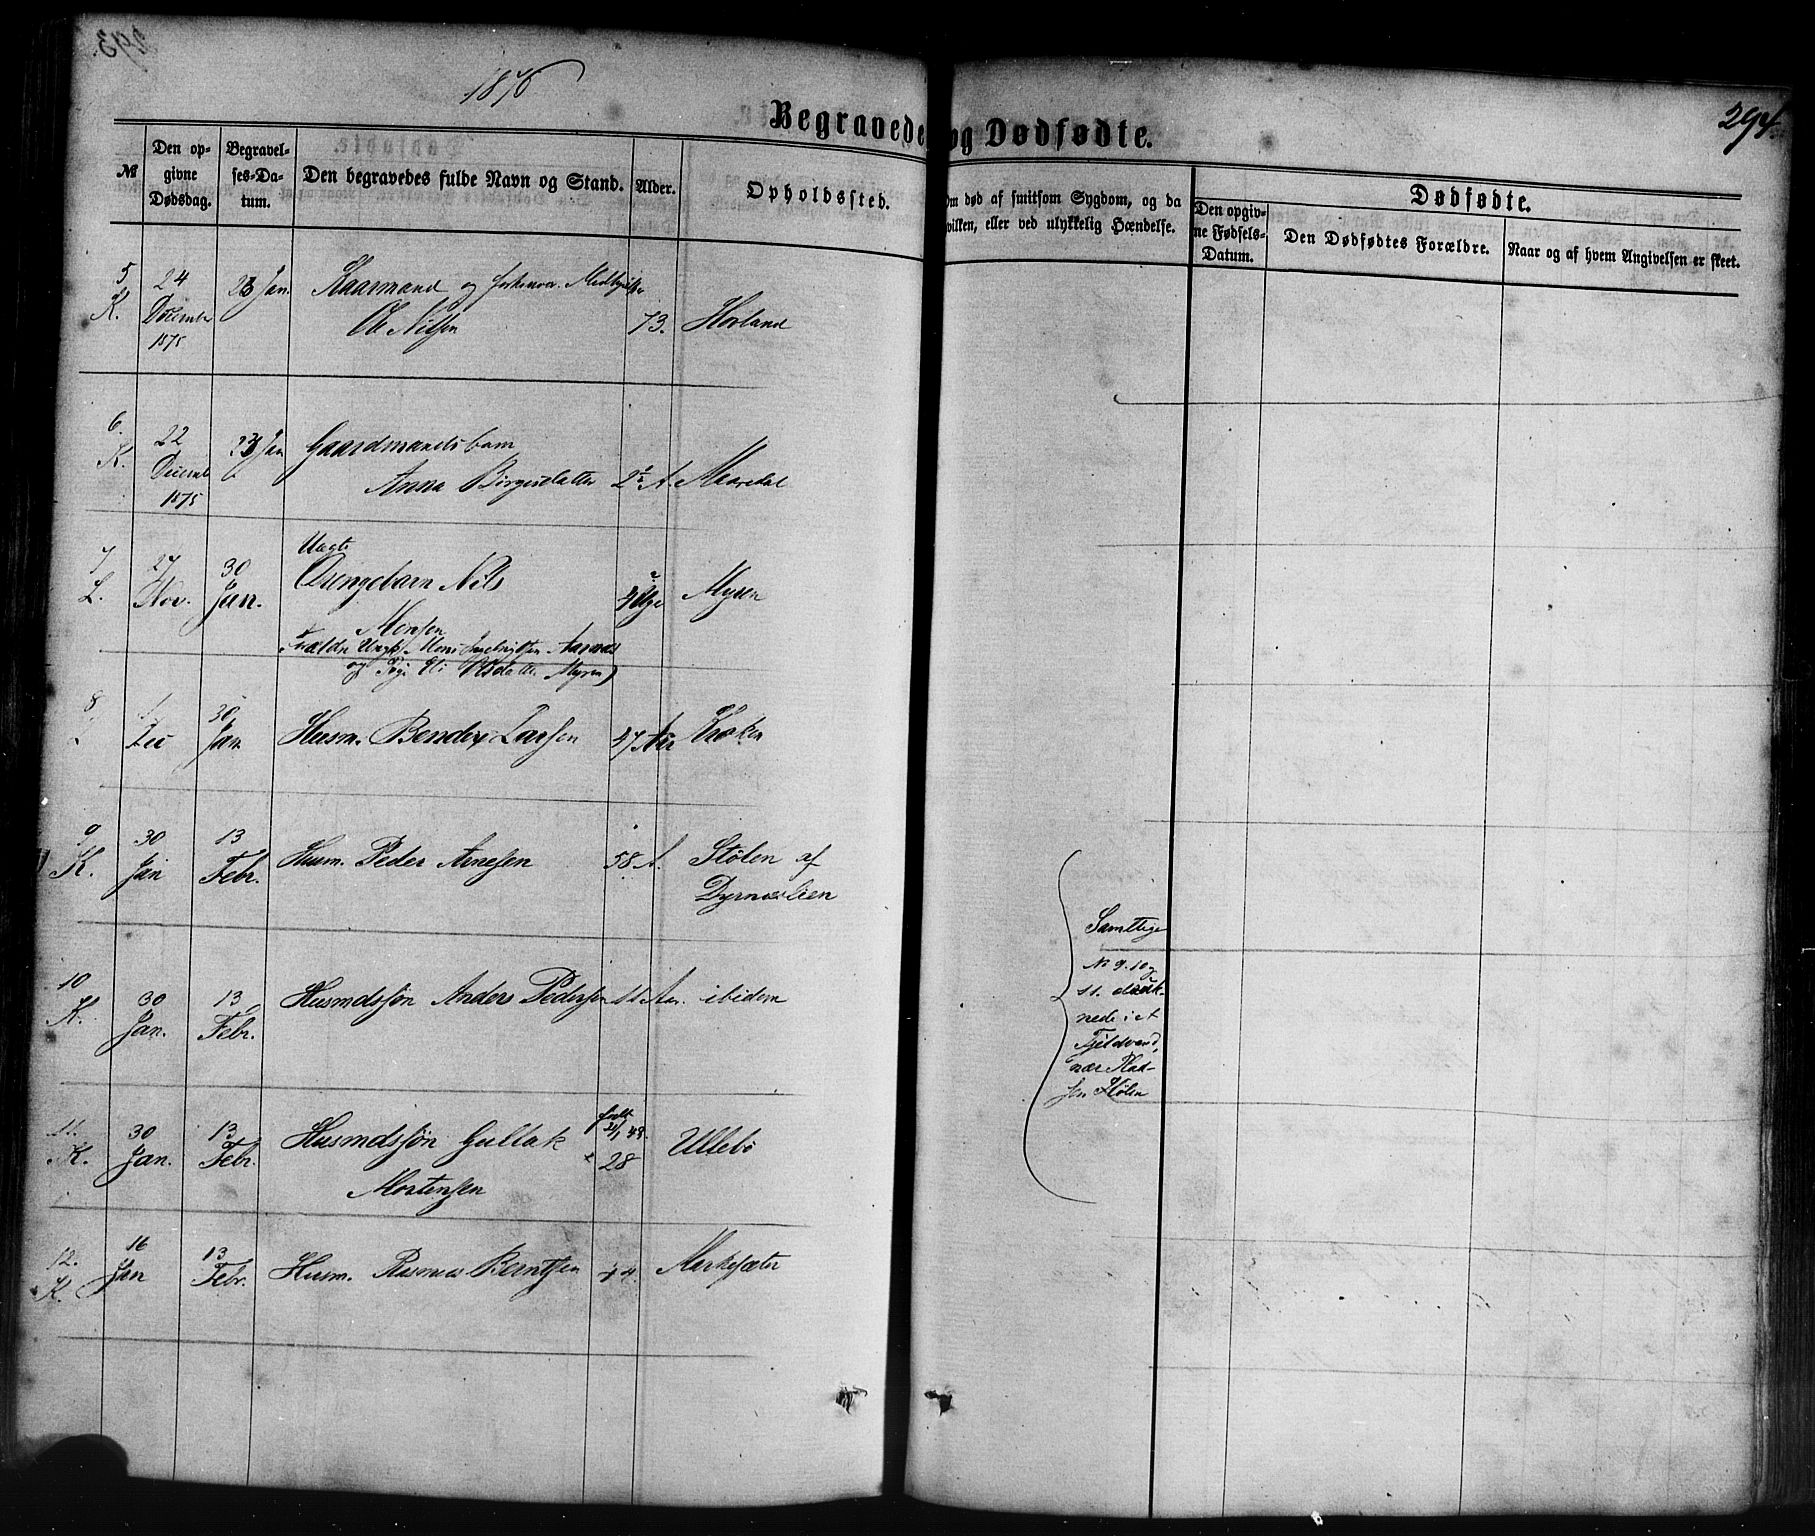 293.
1876
294.
Begravede og Dødfødte.
№
Den opgivne Dødsdag.
Begravelses-Datum.
Den begravedes fulde Navn og Stand.
Alder.
Opholdssted.
Om død af smitsom Sygdom, og da
hvilken, eller ved ulykkelig Hændelse.
Dødfødte.
Den opgivne Fødsels-Datum.
Den Dødfødtes Forældre.
Naar og af hvem Angivelsen er skeet.
5 K. 24 December 1875 23 Jan. Kaarmand og
Ole Nilsen 73. Hovland
6. K. 22 Decembr 1875 23 Jan Gaardmandsbarn
Anna Birgesdatter 2½ A. Maredal
7 L. 27 Nov. 30 Jan. Uægte
Drengebarn Nils Myren
Monsen
Ungk. Mons Aarnæs
og Pige Eli Olsdatter Myren)
8 Dec 30 Jan. Husm. Bendix Larsen 47 Aar Kroken
9 K. 30 Jan 13 Febr. Husm. Peder Arnesen 58 A. Stølen af
Dyrnæslien
10 K. 30 Jan. 13 Febr. Husmdssøn Anders Pedersen 11 Aar. ibidem
Samtlige
№ 9. 10 og
11. druk-
nede i et
Fjeldvand,
nær Plad-
sen Stølen
11. K. 30 Jan. 13 Febr. Husmdssøn Gullak født 43. 28 Ullebø
Mortensen
12. K. 16 Jan 13 Febr. Husm. Rasmus Berntsen 74. Markesæter